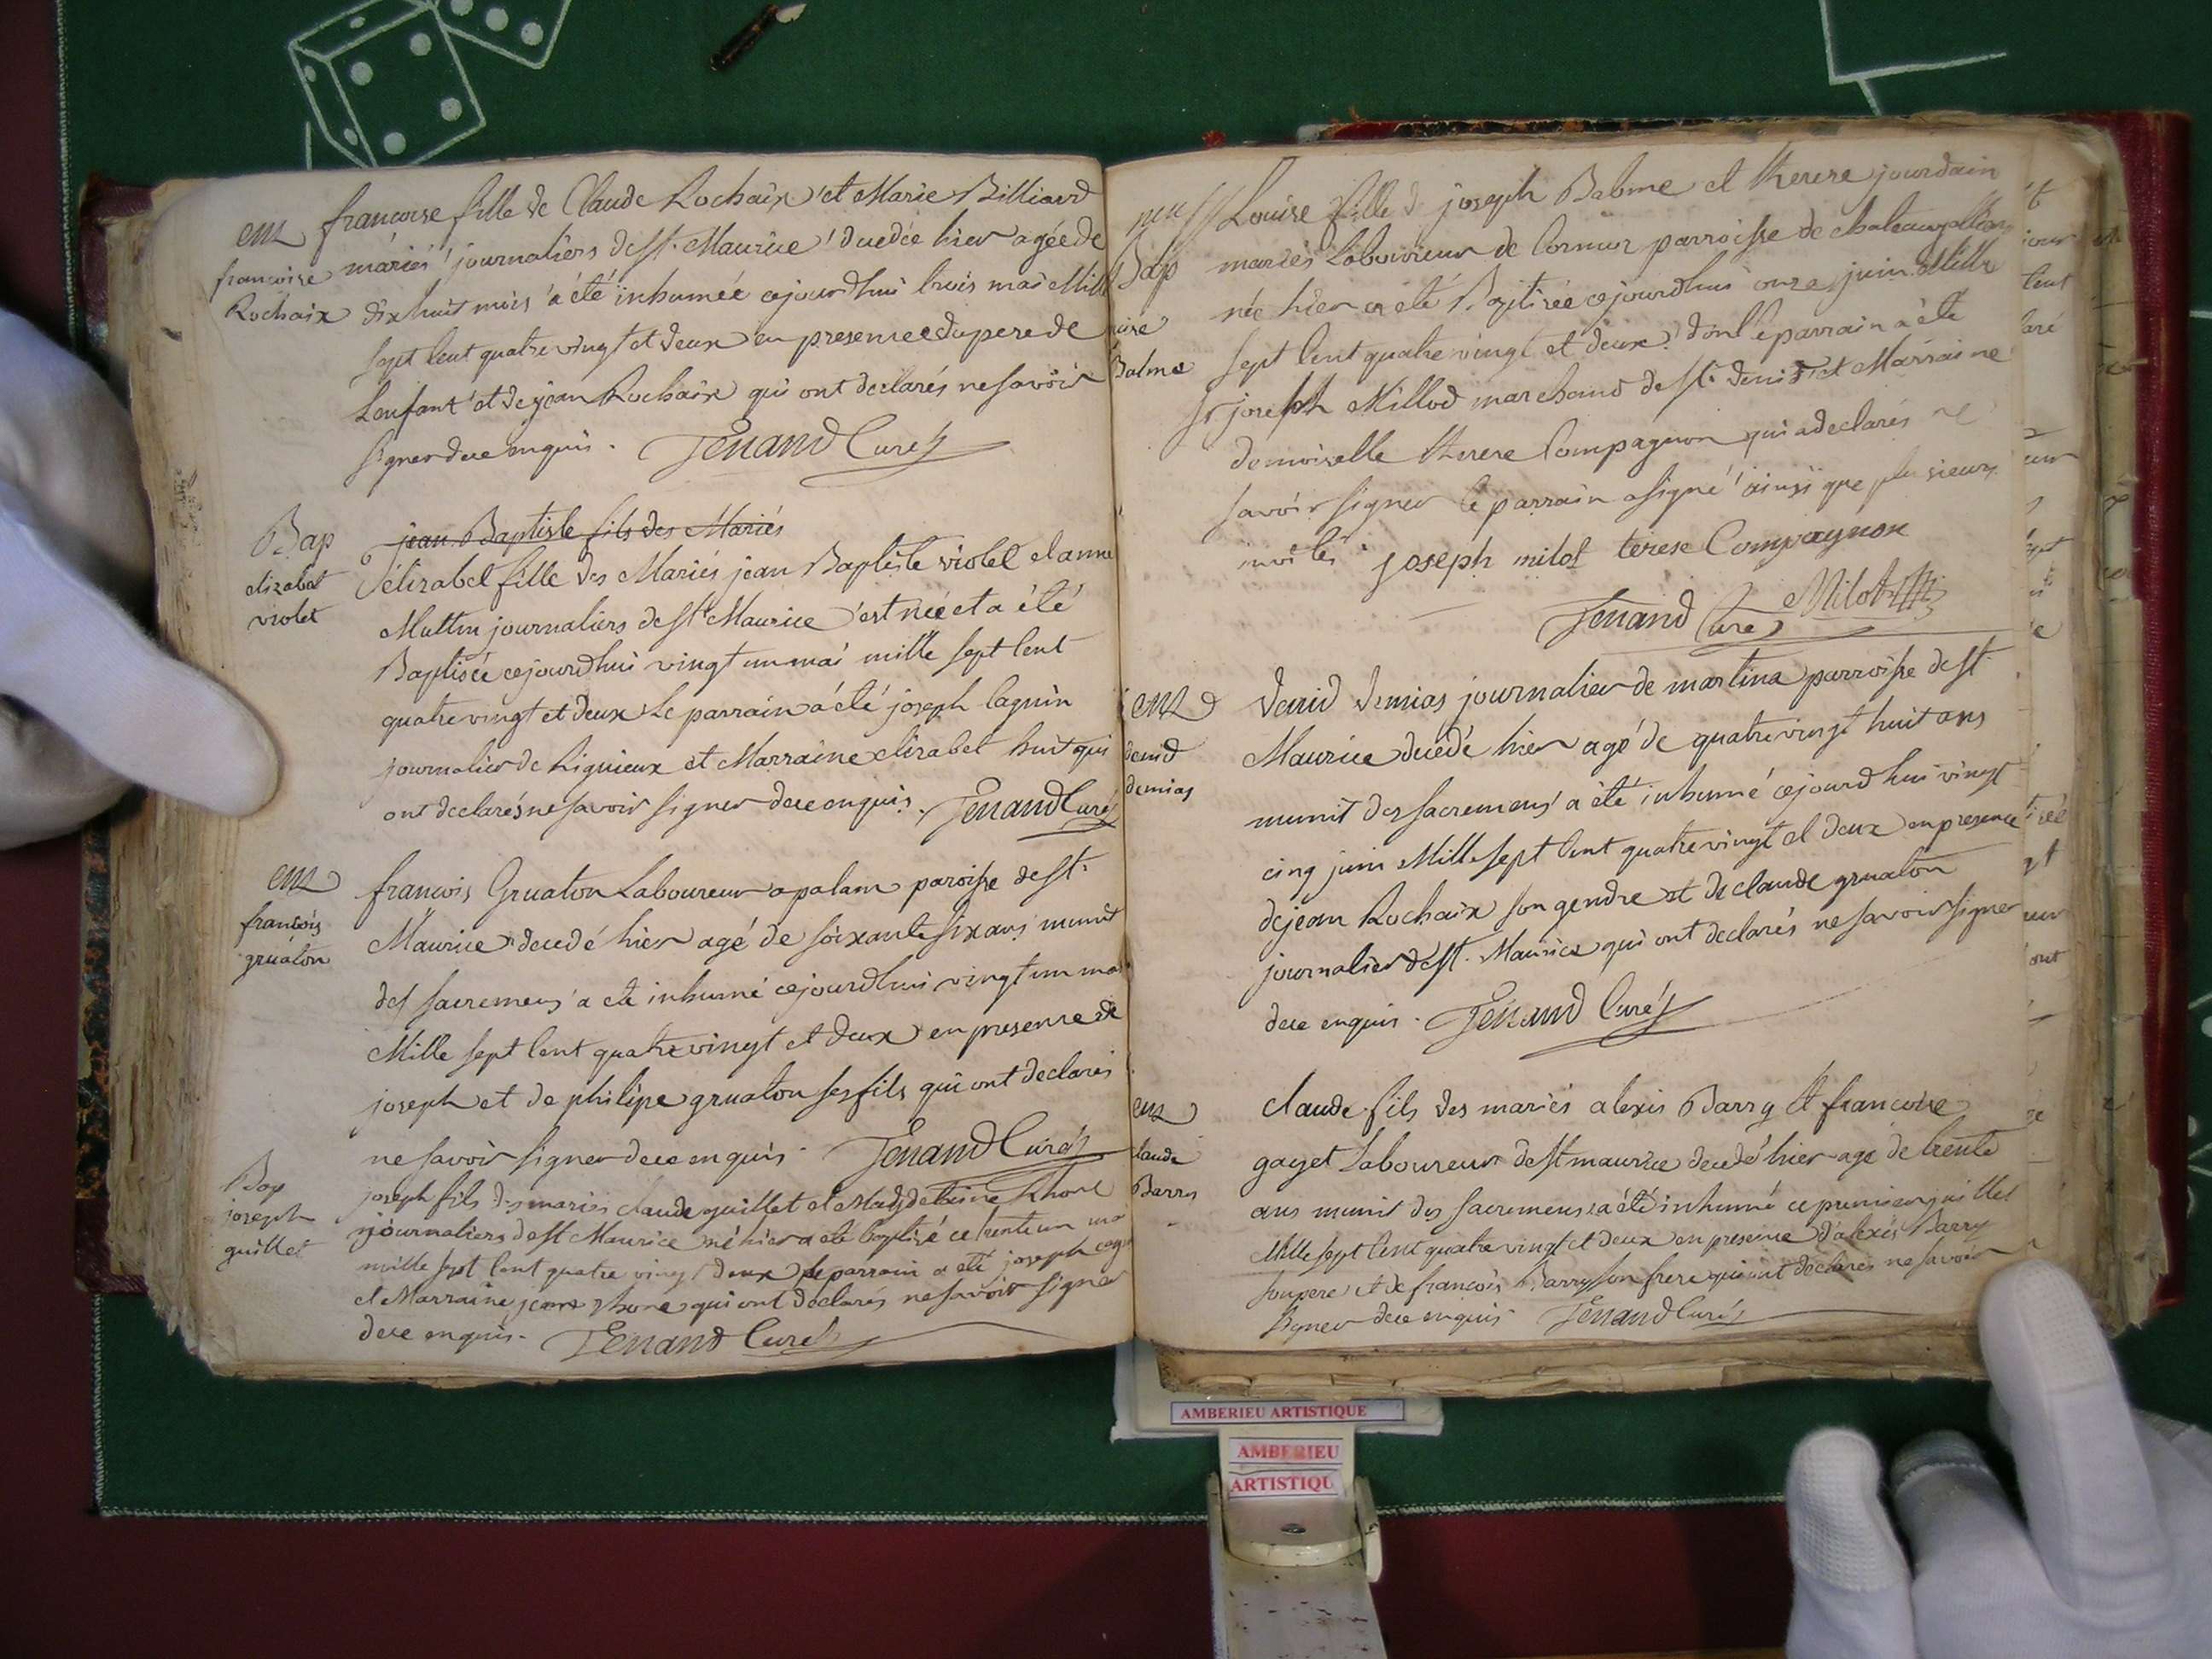 ent
francoise
Rochaix
francoise fille de Claude Rochaix et Marie Billiard
mariés journaliers de st. Maurice decedée hier agée de
dixhuit mois a été inhumée cejourdhui trois mai Mill
sept Cent quatre vingt et deux en presence du pere de
L'enfant et de jean Rochaix qui ont declarés ne savoir
signer de ce enquis. Tenand Curé
Bap
elizabet
violet
jean Baptiste fils des Mariés
élizabet fille des Mariés jean Baptiste violet et anne
Muttin journaliers de st Maurice est née et a été
Baptisée cejourdhui vingt un mai mille sept Cent
quatre vingt et deux Le parrain a été joseph Cagnin
journalier de Ligneux et Marraine elizabet huit qui
ont declarés ne savoir signer de ce enquis. Tenand Curé
ent
francois
gruaton
francois Gruaton Laboureur a palam paroisse de st.
Maurice decedé hier agé de soixante six ans munit
des sacremens a eté inhumé cejourdhui vingt un mai
Mille sept Cent quatre vingt et deux en presence de
joseph et de philipe gruaton ses fils qui ont declarés
ne savoir signer de ce enquis. Tenand Curé
Bap
joseph
guillet
joseph fils des mariés claude guillet et Magdeleine Rhone
journaliers de st Maurice né hier a eté baptisé ce trente un mai
mille sept Cent quatre vingt deux le parrain a eté joseph
et Marraine jeanne rhone qui ont declarés ne savoir signer
de ce enquis. Tenand Curé
Bap
Balme
Louise fille de joseph Balme et therese jourdain
mariés Laboureur de Cormoz parroisse de chateaugaillard
née hier a eté Baptisée cejourdhui onze juin Mille
sept Cent quatre vingt et deux dont le parrain a été
sr joseph Millod marchand de st. denis et Marraine
demoiselle therese Compagnon qui a declarés ne
savoir signer le parrain a signé ainsi que plusieurs
invités joseph milot terese Compagnon
Tenand Curé Milot
ent
denid
demias
denid demias journalier de martinaz parroisse de st.
Maurice decedé hier agé de quatre vingt huit ans
munit des sacremens a été inhumé cejourdhui vingt
cinq juin Mille sept Cent quatre vingt et deux en presence
de jean Rochaix son gendre et de claude gruaton
journalier de st. Maurice qui ont declarés ne savoir signer
de ce enquis. Tenand Curé
ent
laude
Barry
Claude fils des mariés alexis Barry et francoise
gayet Laboureur de st maurice decedé hier agé de trente
ans munit des sacremens a été inhumé ce premier juillet
Mille sept Cent quatre vingt et deux en presence d'alexis Barry
son pere et de francois Barry son frere qui ont declarés ne savoir
signer de ce enquis Tenand Curé
AMBERIEU ARTISTIQUE
AMBERIEU
ARTISTIQU